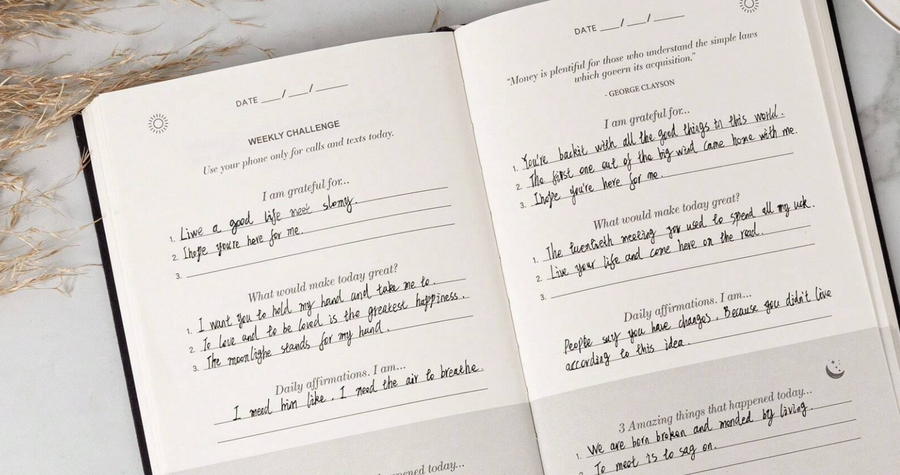 DATE __/__/__
WEEKLY CHALLENGE
Use your phone only for calls and texts today.
I am grateful for...
1. Live a good life meet slomy.
2. I hope you're here for me.
3.
What would make today great?
1. I want you to hold my hand and take me to.
2. To love and to be loved is the greatest happiness.
3. The moonlighe stands for my hand.
Daily affirmations. I am...
I need him like. I need the air to breathe.
happened today...
DATE __/__/__
"Money is plentiful for those who understand the simple laws
which govern its acquisition."
- GEORGE CLAYSON
I am grateful for...
1. You're backit with all the good things in this world.
2. The first one out of the big wind came home with me.
3. I hope you're here for me.
What would make today great?
1. The twentieth meeting you used to spend all my uck.
2. Live your life and come here on the road.
3.
Daily affirmations. I am...
People say you have changes. Because you didn't live
according to this idea.
3 Amazing things that happened today...
1. We are born broken and mended by living.
2. To meet is to say on.